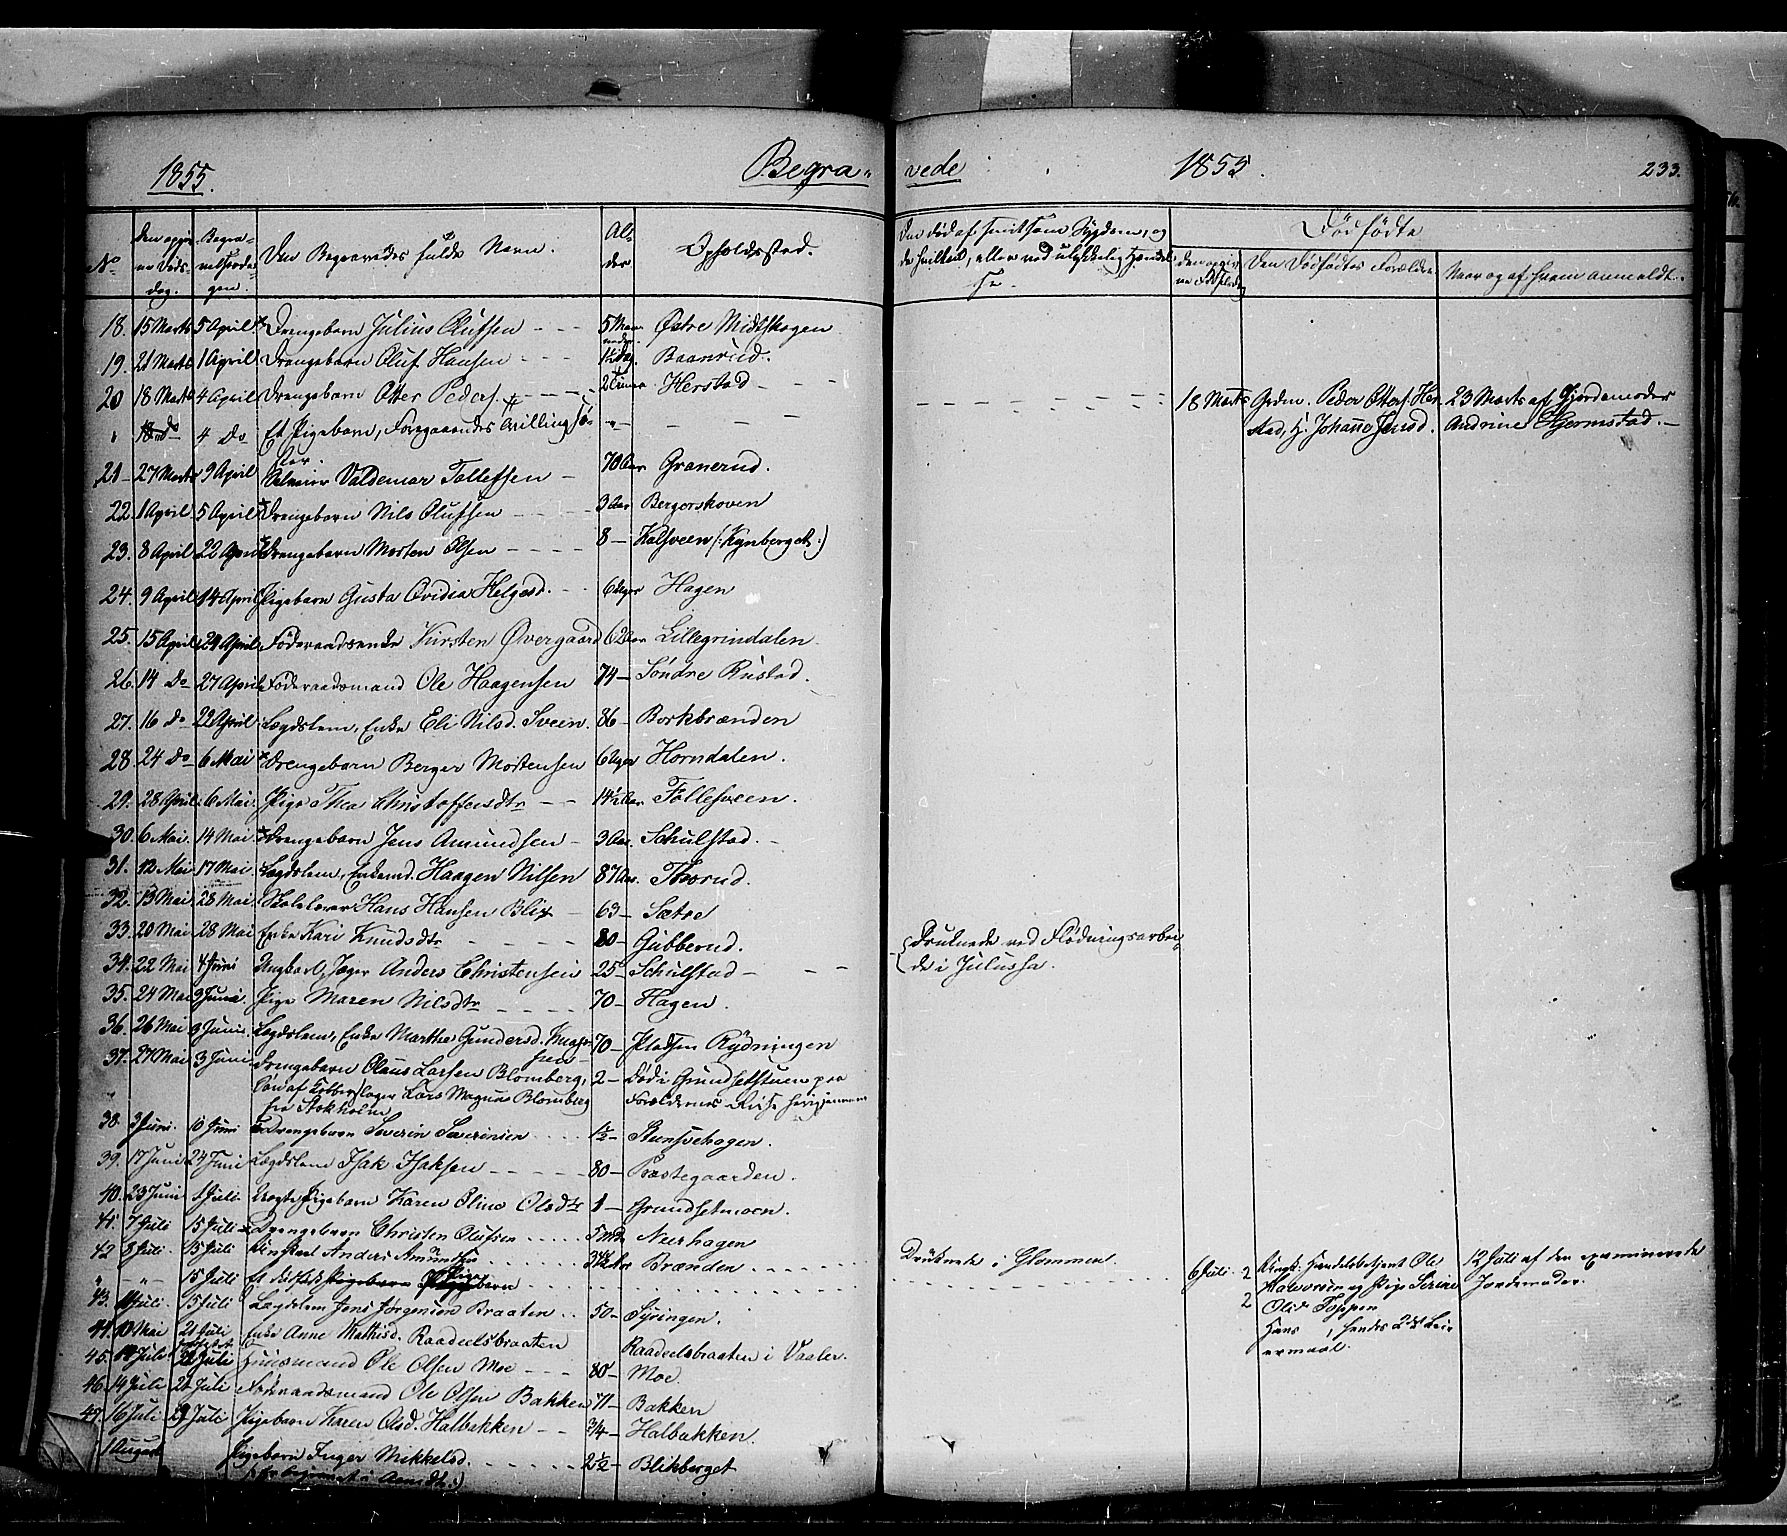 1855.
Begra-
vede
1855.
233.
No
Den Begravedes fulde Navn.
Al-
der
Opholdssted.
Dødfødte
Den Dødfødtes Forældre
Naar og af hvem anmeldt.
18. 15 Marts 5 April Drengebarn Julius Olufsen 5 Maa- Østre Midtskogen
neder
19. 21 Marts 1 April Drengebarn Oluf Hansen Baanrud.
20 18 Marts 4 April Drengebarn Otter Peders. 2 Timer Herstad
18 Marts Peder Otters. Her- 23 Marts af Gjordemoder
" 18 do 4 Do Et Pigebarn, Foregaaendes Tvillingsø-
stad, H. Johanne Andrine Hjermstad.
ster.
21 27 Marts 9 April Valdemar Tollefsen 70 Aar Granerud.
22 1 April 5 April Drengebarn Nils Olufsen 3 Aar Bergerskoven
23. 8 April 22 April Drengebarn Morten Olsen 8 Kalsveen (:Kynberget:)
24. 9 April 14 April Pigebarn Gusta Ovidia Helgesd. 6 Uger Hagen
25. 15 April 24 April Føderaadsenke Kirsten Overgaard 62 Aar Lillegrindalen
26. 14 Do 27 April Føderaadsmand Ole Haagensen 74 Søndre Rustad.
27. 16 Do 22 April Lægdslem, Enke Eli Nilsd. Sveen. 86 Borkbrænden
28 24 Do 6 Mai Drengebarn Berger Mortensen 6 Uger Horndalen.
29. 28 April 6 Mai. Pige Thea Christoffersdtr 14½ Aar Tollefsveen.
30. 6 Mai. 14 Mai Drengebarn Jens Amundsen 3 Aar. Schulstad.
31. 12 Mai 17 Mai Lægdslem, Enkemd. Haagen Nilsen 87 Aar. Thorud.
32. 13 Mai 28 Mai Skolelærer Hans Hansen Blix 63 Sætre
33. 20 Mai 28 Mai Enke Kari Knudsdtr 80 Gubberud.
34. 22 Mai 4 Juni Ungkarl, Jæger Anders Christensen 25 Schulstad
Druknede ved Flødningsarbei-
de i Julussa.
35. 24 Mai 3 Juni. Pige Maren Nilsdtr 70 Hagen.
36. 26 Mai 3 Juni. Lægdslem, Enke Marthe Gundersd. 70 Pladsen Rydningen
37. 27 Mai 3 Juni Drengebarn Claus Larsen Blomberg, 2 Død i Grundsetstuen paa
Søn af Lars Magnus Blomberg Forældrenes Reise
fra Stokholm
38. 3 Juni. 10 Juni Drengebarn Severin Severinsen 1½ Stensvehagen.
39. 17 Juni 24 Juni Lægdslem Isak Isaksen 80 Præstegaarden.
40. 23 Juni 1 Juli. Uægte Pigebarn Karen Oline Olsdtr 1 Grundsetmoen.
41. 7 Juli 15 Juli Drengebarn Christen Olufsen 5 Mdr Nerhagen
42 8 Juli. 15 Juli Anders Amundsen Brænden
Druknede i Glommen.
" " 15 Juli Et Pigebarn
6 Juli. 2 Ungk. Handelsbetjent Ole 12 Juli af den examinerede
Halvorsen og Pige Jordemoder.
2 Olsd. Toppen
Hans , hendes 2det Leier-
ermaal.
43. 15 Juli Lægdslem Jens Jørgensen Braaten 50 Syringen.
44. 10 Mai 21 Juli Enke Anne Mathisd. Raadeelsbraaten Raadeelsbraaten i Vaaler.
45. 22 Juli Huusmand Ole Olsen Moe 80 Moe.
46. 14 Juli 21 Juli Føderaadsmand Ole Olsen Bakken 71 Bakken
47. 16 Juli Juli Pigebarn Karen Olsd. Halbakken 3/4 Halbakken.
1 August Pigebarn Inger Mikkelsd. 2½ Blikberget